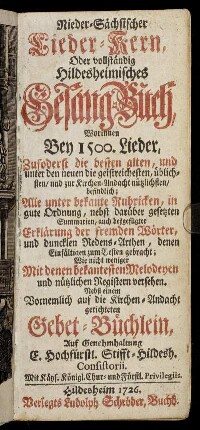 Nieder-Sächsischer
Lieder-Kern,
Oder vollständig
Hildesheimisches
Gesang-Buch,
Worinnen
Bey 1500. Lieder,
Zuforderst die besten alten, und
unter den neuen die geistreichesten, üblich-
sten, und zur Kirchen-Andacht nützlichsten,
befindlich;
Alle unter bekante Rubricken, in
gute Ordnung, nebst darüber gesetzten
Summarien, auch beygefügter
Erklärung der fremden Wörter,
und duncklen Redens-Arthen, denen
Einfältigen zum Besten gebracht;
Wie nicht weniger
Mit denen bekantesten Melodeyen
und nützlichen Registern versehen.
Nebst einem
Vornemlich auf die Kirchen-Andacht
gerichteten
Gebet-Büchlein,
Auf Genehmhaltung
E. Hochfürstl. Stifft-Hildesh.
Consistorii.
Mit Käys. Königl. Chur- und Fürstl. Privilegiis.
Hildesheim 1726.
Verlegts Ludolph Schröder, Buchb.